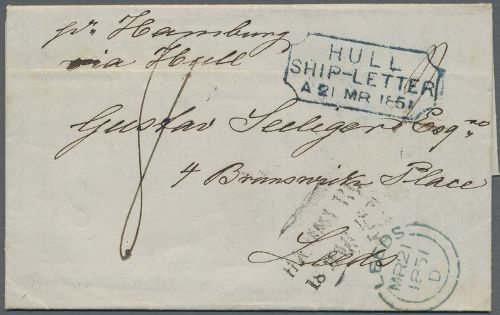 pr Hamburg
via Hull
HULL
SHIP-LETTER
A 21 MR 1851
8
Gustav Seeliger Esqre
4 Brunswick Place
Leeds
18
LEEDS
MR 21
1851
D